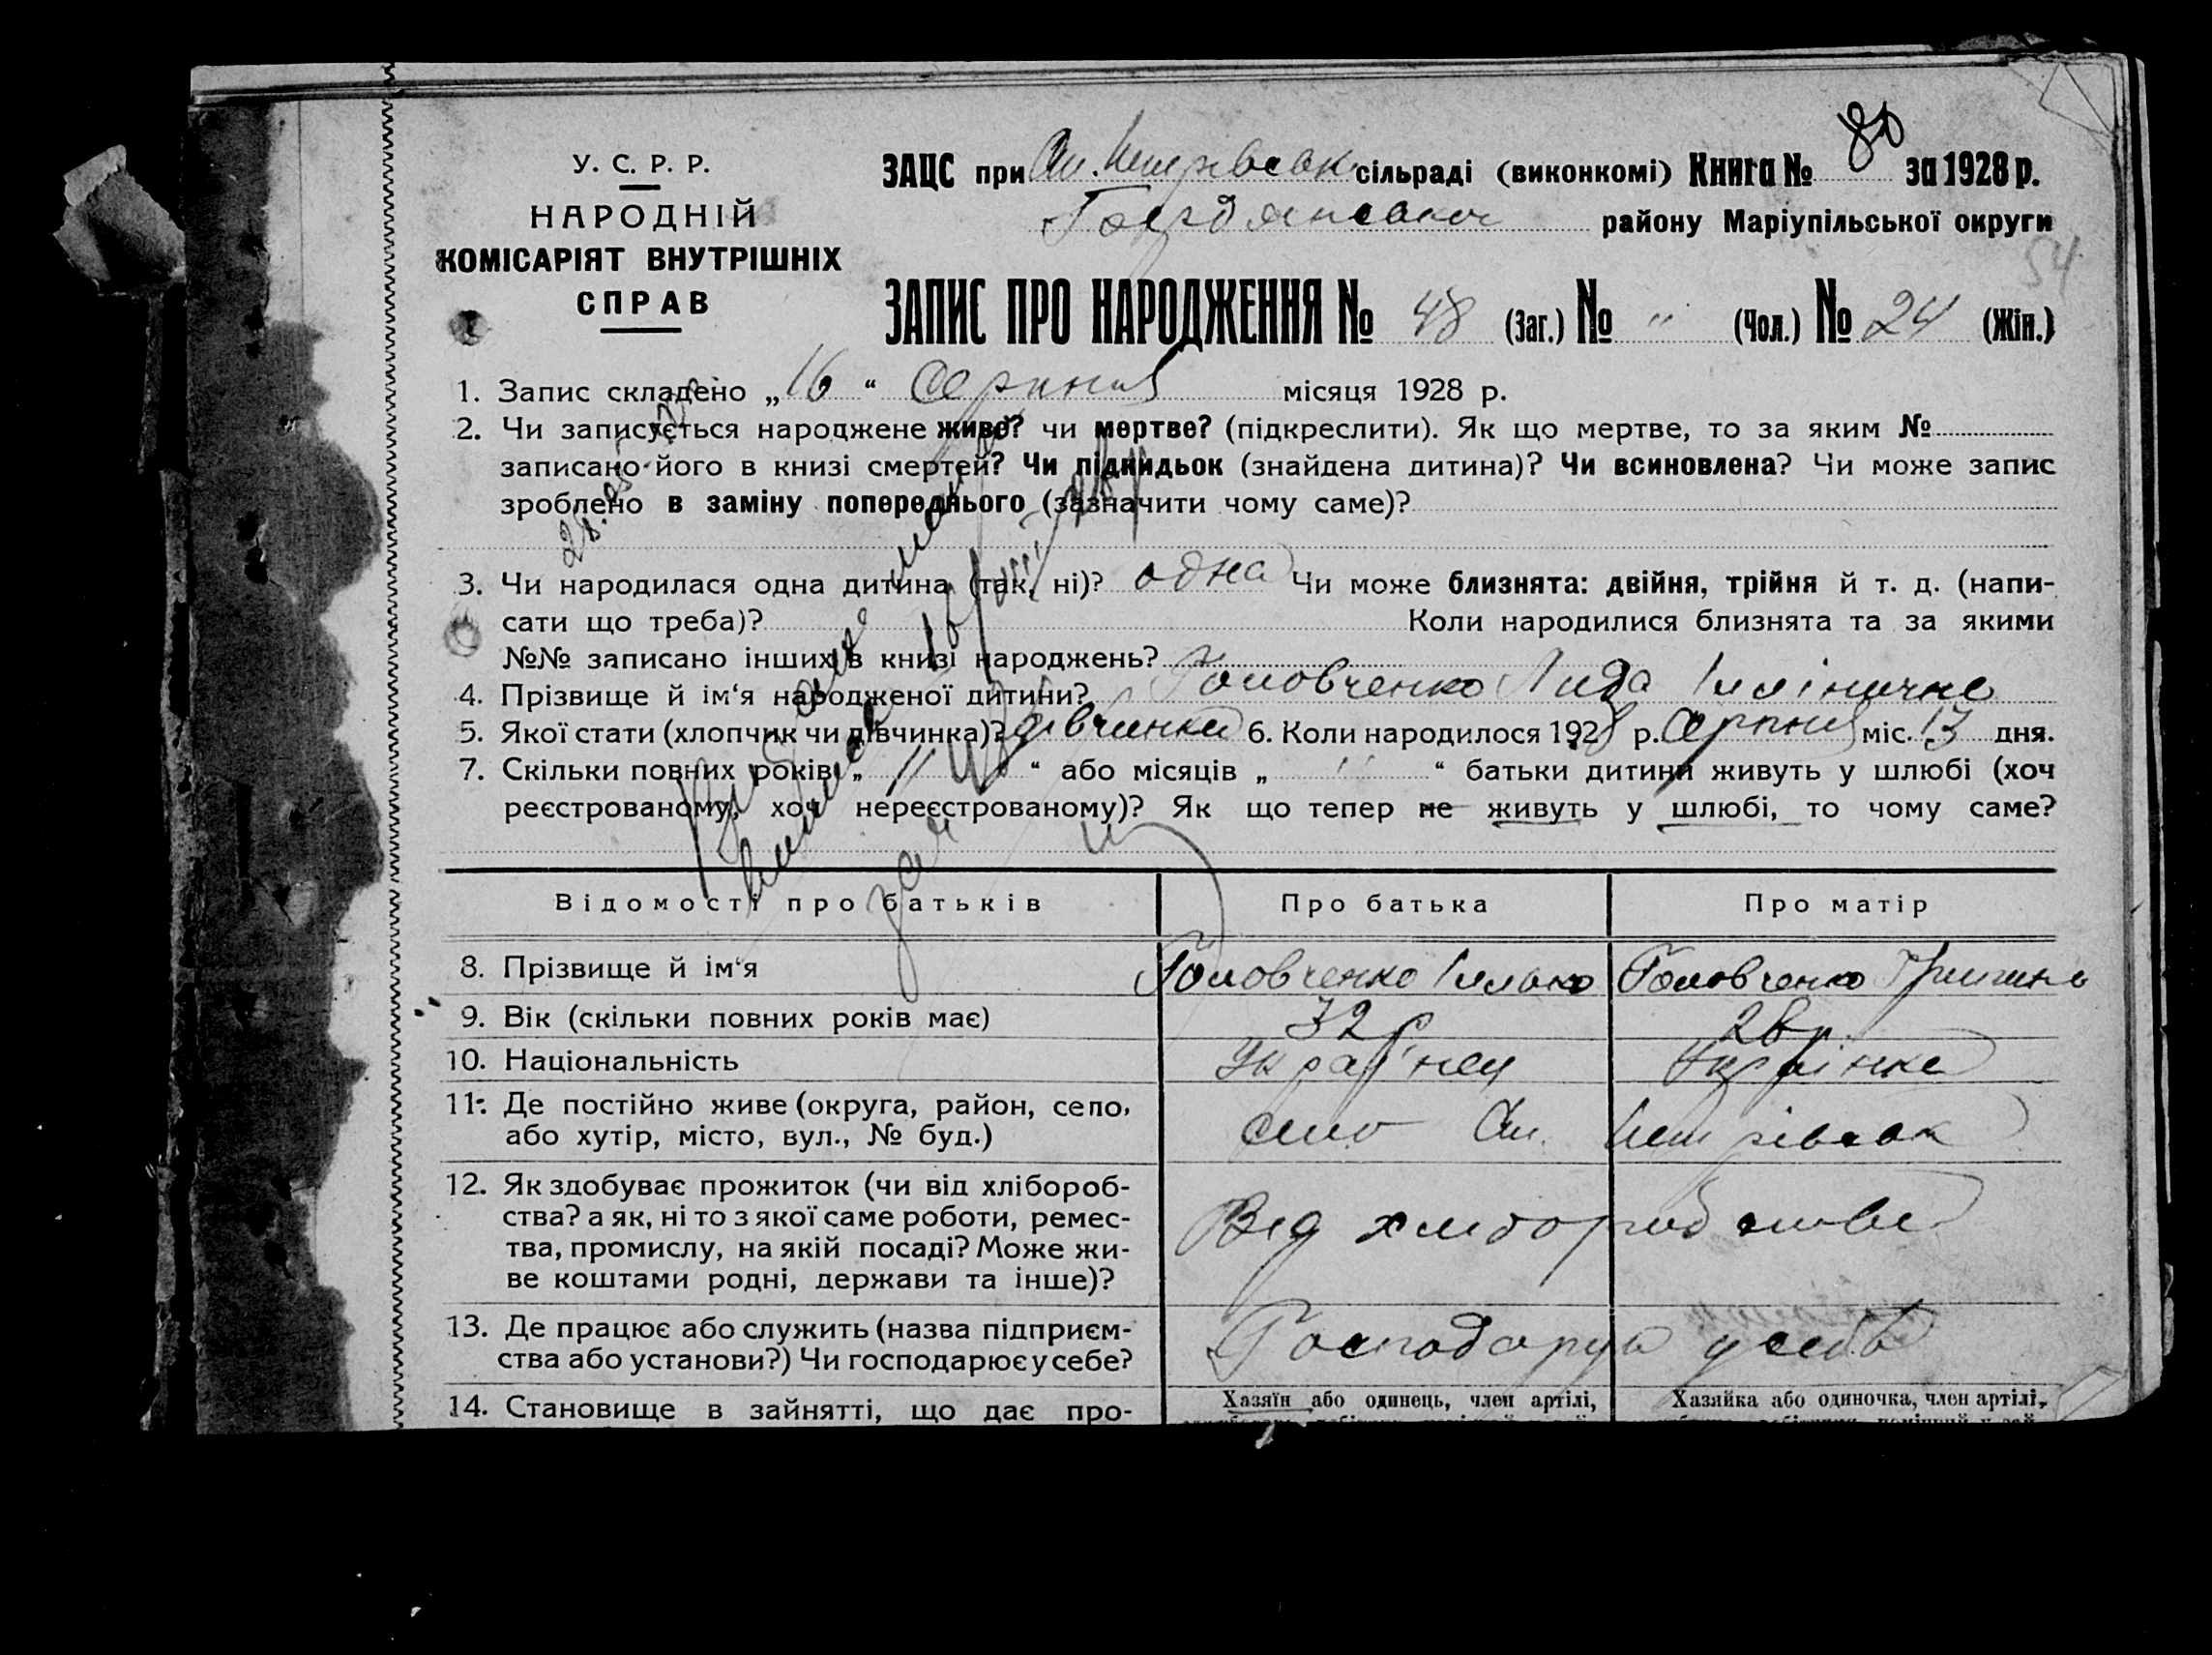 У. С. Р. Р.
НАРОДНІЙ
КОМІСАРІЯТ ВНУТРІШНІХ
СПРАВ
ЗАЦС при сільраді (виконкомі) Книга № 80 за 1928 р.
району Маріупільської округи
54
ЗАПИС ПРО НАРОДЖЕННЯ № 48 (Заг.) № " (Чол.) № 24 (Жін.)
1. Запис складено „16“ Серпня місяця 1928 р.
2. Чи записується народжене живе? чи мертве? (підкреслити). Як що мертве, то за яким №
записано його в книзі смертей? Чи підкидьок (знайдена дитина)? Чи всиновлена? Чи може запис
зроблено в заміну попереднього (зазначити чому саме)?
3. Чи народилася одна дитина (так, ні)? одна Чи може близнята: двійня, трійня й т. д. (напи-
сати що треба)? Коли народилися близнята та за якими
№№ записано інших в книзі народжень?
4. Прізвище й ім‘я народженої дитини? Головченко Лида
5. Якої стати (хлопчик чи дівчинка)? дівчинка 6. Коли народилося 1928 р. Серпня міс. 13 дня.
7. Скільки повних років „ 11 “ або місяців „ “ батьки дитини живуть у шлюбі (хоч
реєстрованому, хоч нереєстрованому)? Як що тепер не живуть у шлюбі, то чому саме?
Відомості про батьків Про батька Про матір
8. Прізвище й ім‘я Головченко Головченко
9. Вік (скільки повних років має) 32 р 26 р.
10. Національність Українец Українка
11. Де постійно живе (округа, район, село,
або хутір, місто, вул., № буд.) село
12. Як здобуває прожиток (чи від хлібороб-
ства? а як, ні то з якої саме роботи, ремес-
тва, промислу, на якій посаді? Може жи-
ве коштами родні, держави та інше)?
Від хліборобства
13. Де працює або служить (назва підприєм-
ства або установи?) Чи господарює у себе?
Господарує у себе
14. Становище в зайнятті, що дає про- Хазяїн або одинець, член артілі, Хазяйка або одиночка, член артілі,